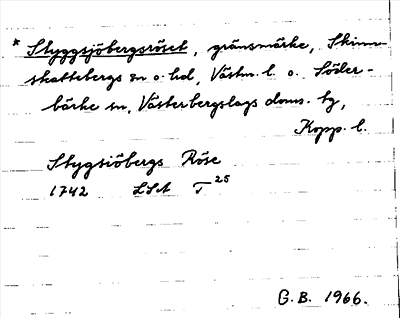 * Styggsjöbergsröset, gränsmärke, Skinn-
skattebergs sn o. hd, Västm. l. o. Söder-
bärke sn, Västerbergslags doms. bg,
Kopp. l.
Stygsiöbergs Röse
1742 LSA T 25
G. B. 1966.